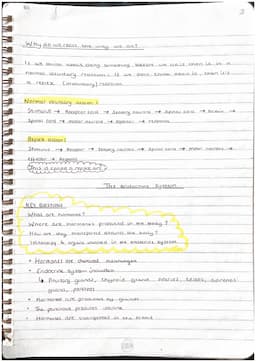 Why do we react the way we do?
If we think about doing something before we do it then it is a
normal voluntary reaction. If we don't think about it, then it's
a reflex (involuntary) reaction.
Normal voluntary action:
Stimulus → Receptor cells → Sensory neurone → Spinal cord → Brain →
Spinal cord → motor neurone → effector → response
Reflex action:
Stimulus → Receptor → Sensory neurone → Spinal cord → motor neurone →
effector → Response
This is called a reflex arc
The endocrine System
KEY QUESTIONS:
What are hormones?
Where are hormones produced in the body?
How are they transported around the body?
organs involved in the endocrine system
• Hormones are chemical messengers
• Endocrine system includes
↳ Pituitary glands, thyroid gland, ovaries, testes, adrenal
gland, pancreas
• Hormones are produced by glands
• The pancreas produces insulin
• Hormones are transported in the blood